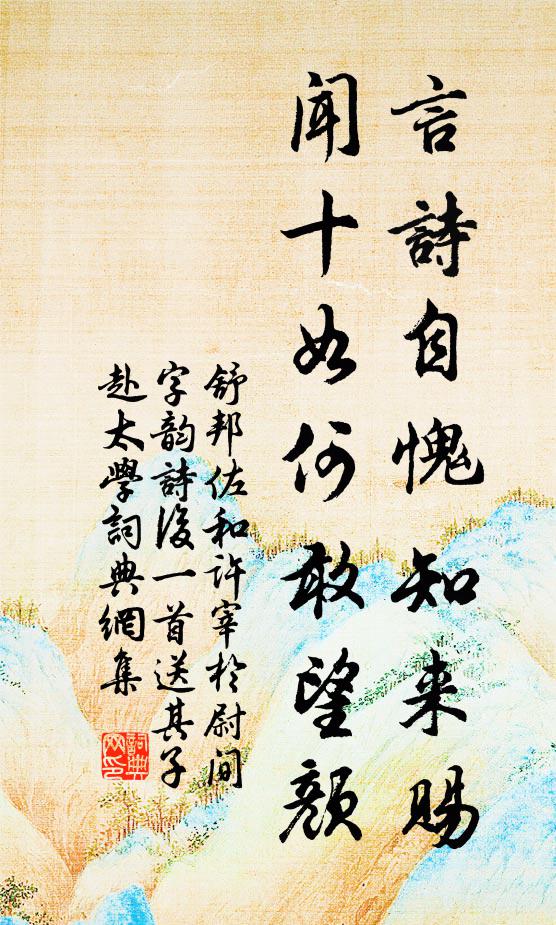 言詩自愧知来賜
聞十如何敢望顔
舒邦佐和許宰於尉間
字韵詩後一首送其子
赴太學詞典網集
詞典
网印